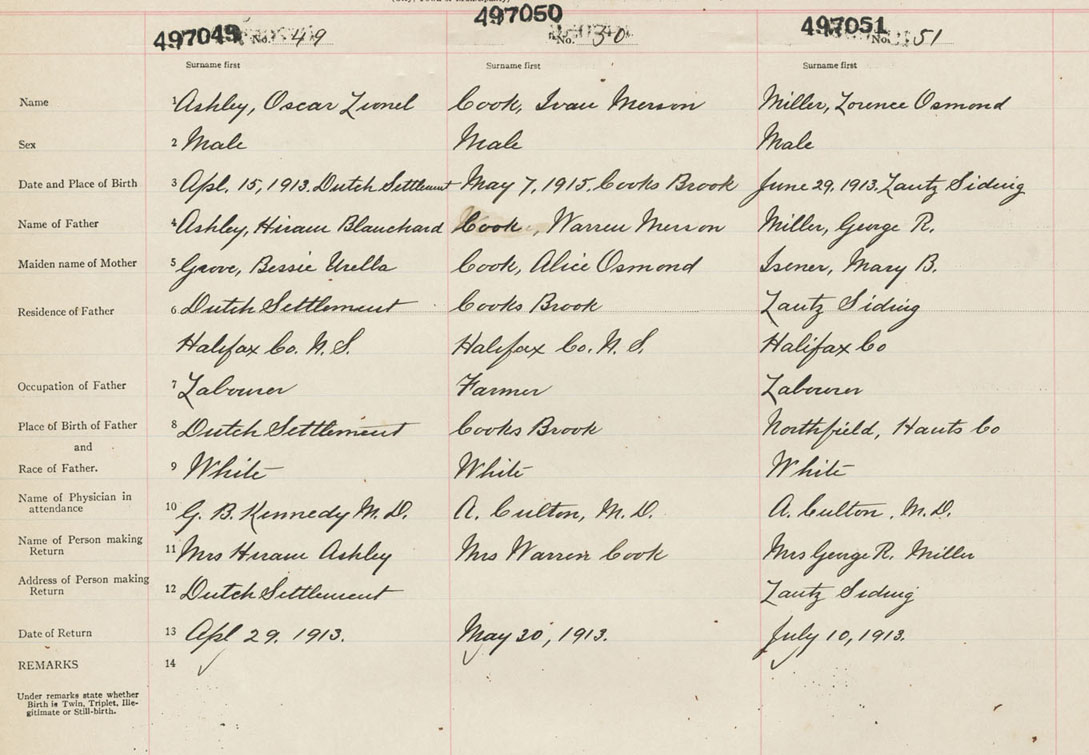 497049 No. 49 497050 No. 50 497051 No. 51
Surname first Surname first Surname first
Name 1 Ashley, Oscar Lionel Cook, Ivan Merson Miller, Lorence Osmond
Sex 2 Male Male Male
Date and Place of Birth 3 Apl. 15, 1913. Dutch Settlement May 7, 1915, Cooks Brook June 29, 1913. Lantz Siding
Name of Father 4 Ashley, Hiram Blanchard Cook, Warren Merson Miller, George R.
Maiden name of Mother 5 Grove, Bessie Urella Cook, Alice Osmond Isener, Mary B.
Residence of Father 6 Dutch Settlement Cooks Brook Lantz Siding
Halifax Co. N. S. Halifax Co. N. S. Halifax Co
Occupation of Father 7 Labourer Farmer Labourer
Place of Birth of Father 8 Dutch Settlement Cooks Brook Northfield, Hants Co
and
Race of Father. 9 White White White
Name of Physician in
attendance 10 G. B. Kennedy M. D. A. Culton, M. D. A. Culton. M. D.
Name of Person making
Return 11 Mrs Hiram Ashley Mrs Warren Cook Mrs George R. Miller
Address of Person making
Return 12 Dutch Settlement Lantz Siding
Date of Return 13 Apl 29. 1913. May 30, 1913. July 10, 1913.
REMARKS 14
Under remarks state whether
Birth is Twin, Triplet, Ille-
gitimate or Still-birth.